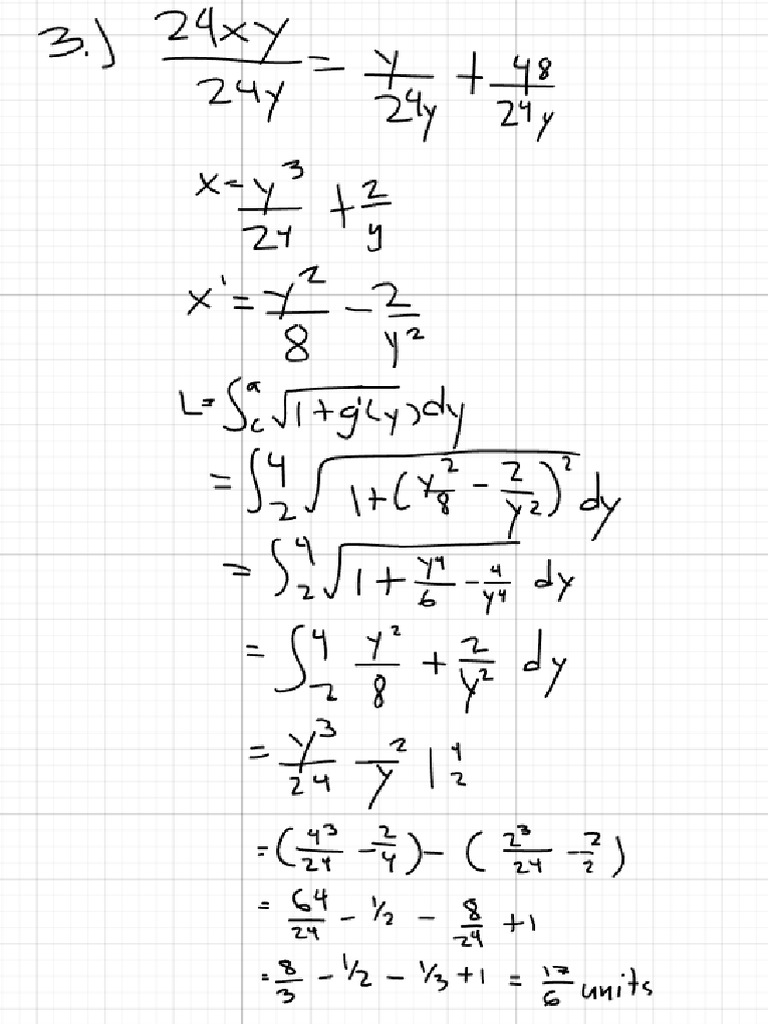 3.) 24xy/24y = y/24y + 48/24y
x = y³/24 + 2/y
x' = y²/8 - 2/y²
L = ∫ᶜᵃ √(1 + g'(y)) dy
= ∫₂⁴ √(1 + (y²/8 - 2/y²)²) dy
= ∫₂⁴ √(1 + y⁴/6 - 4/y⁴) dy
= ∫₂⁴ y²/8 + 2/y² dy
= y³/24 - 2/y |₂⁴
= (4³/24 - 2/4) - (2³/24 - 2/2)
= 64/24 - 1/2 - 8/24 + 1
= 8/3 - 1/2 - 1/3 + 1 = 17/6 units